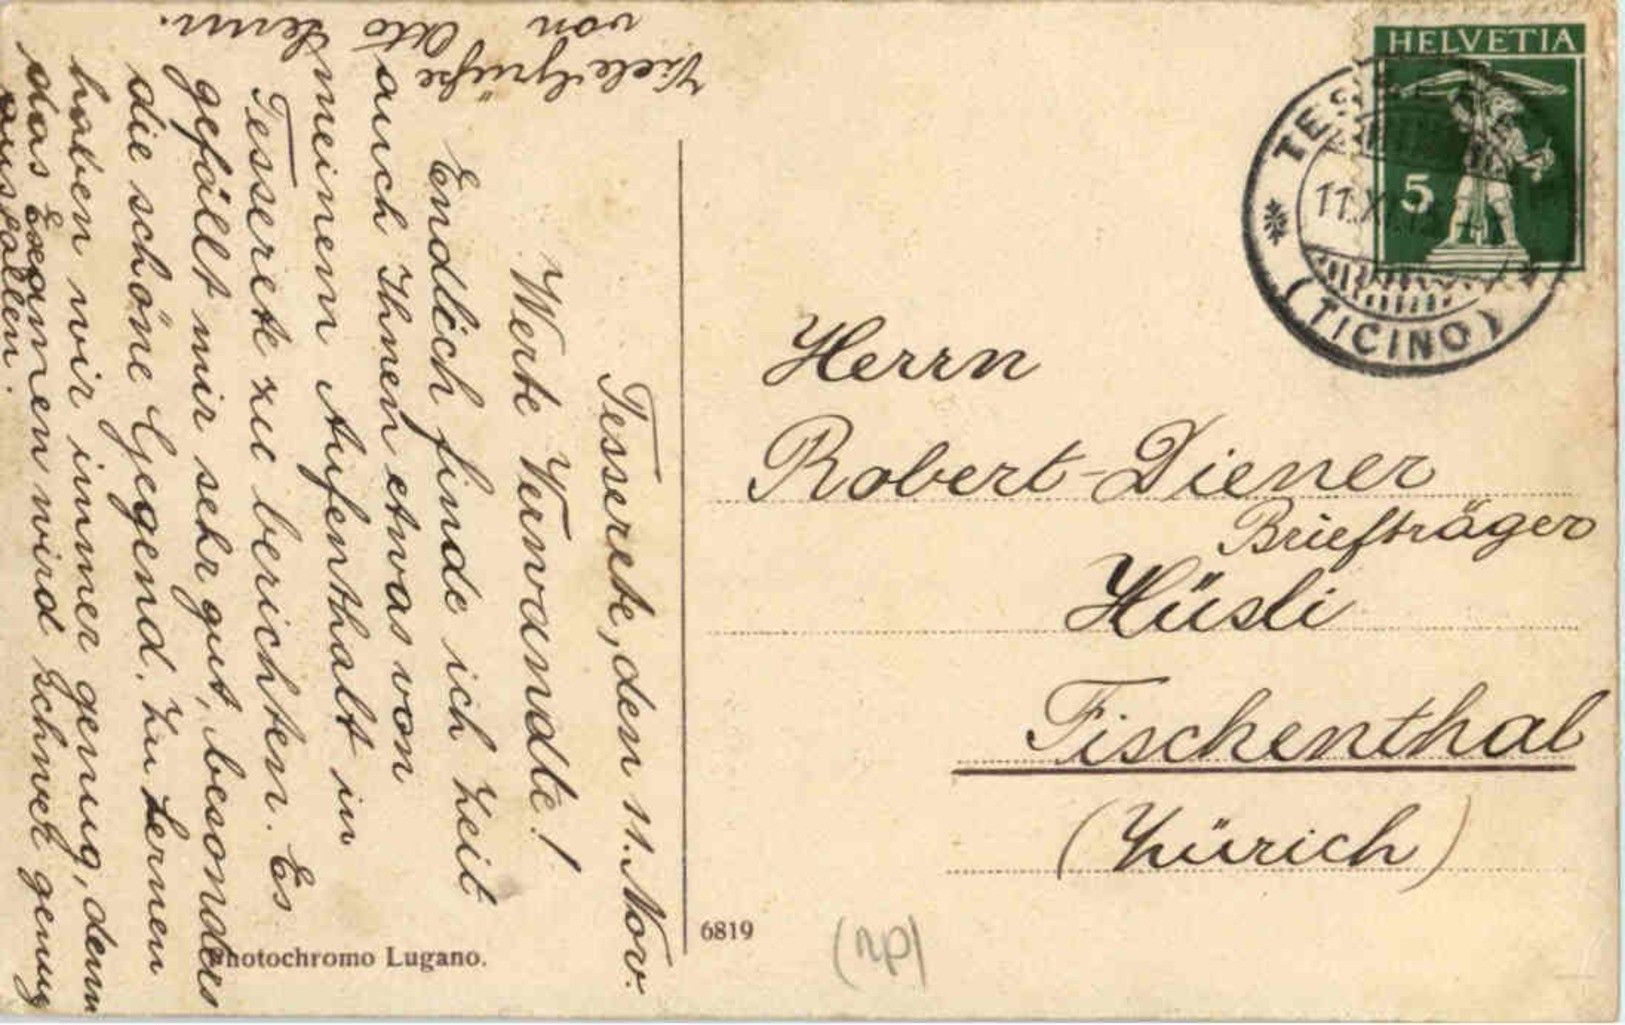 Tesserete, den 11. Nov.
Werte Verwandte!
Endlich finde ich Zeit
auch Ihnen etwas von
meinem Aufenthalt in
Tesserete zu berichten. Es
gefällt mir sehr gut, besonders
die schöne Gegend. Zu lernen
haben wir immer genug, denn
das Examen wird schwer genug
ausfallen.
Viele Grüße
von
Otto
HELVETIA
5
TES
11.XI.
(TICINO)
Herrn
Robert-Diener
Briefträger
Hüsli
Fischenthal
(Zürich)
6819
Photochromo Lugano.